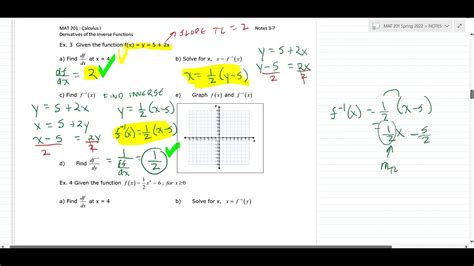 MAT 201 Spring 2022 > NOTES
MAT 201 : Calculus I
Derivatives of the Inverse Functions
Notes 3-7
SLOPE TL = 2
Ex. 3 Given the function f(x) = y = 5 + 2x
a) Find df/dx at x = 4
df/dx = 2
b) Solve for x, x = f⁻¹(y)
x = 1/2 (y-5)
y = 5 + 2x
y-5 = 2x
2 2
c) Find f⁻¹(x)
FIND INVERSE
y = 5 + 2x
x = 5 + 2y
x-5 = 2y
2 2
y = 1/2 (x-5)
f⁻¹(x) = 1/2 (x-5)
e) Graph f(x) and f⁻¹(x)
d) Find df⁻¹/dx = 1/(df/dx) = 1/2
f⁻¹(x) = 1/2 (x-5)
1/2 x - 5/2
Ex. 4 Given the function f(x) = 1/2 x⁴ - 6 ; for x ≥ 0
a) Find df/dx at x = 4
b) Solve for x, x = f⁻¹(y)